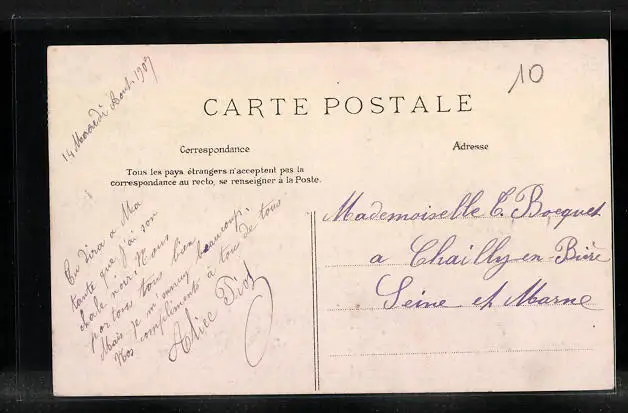 14 Mercredi Aout 1907
10
CARTE POSTALE
Correspondance
Adresse
Tous les pays étrangers n'acceptent pas la
correspondance au recto, se renseigner à la Poste.
Tu dira a Ma
tante que j'ai son
chale noir. Nous
portons tous bien
Mais je m'ennuy beaucoup.
Nos compliments à tou de tous
Alice
Mademoiselle C. Bocquet
a Chailly-en-Bière
Seine et Marne